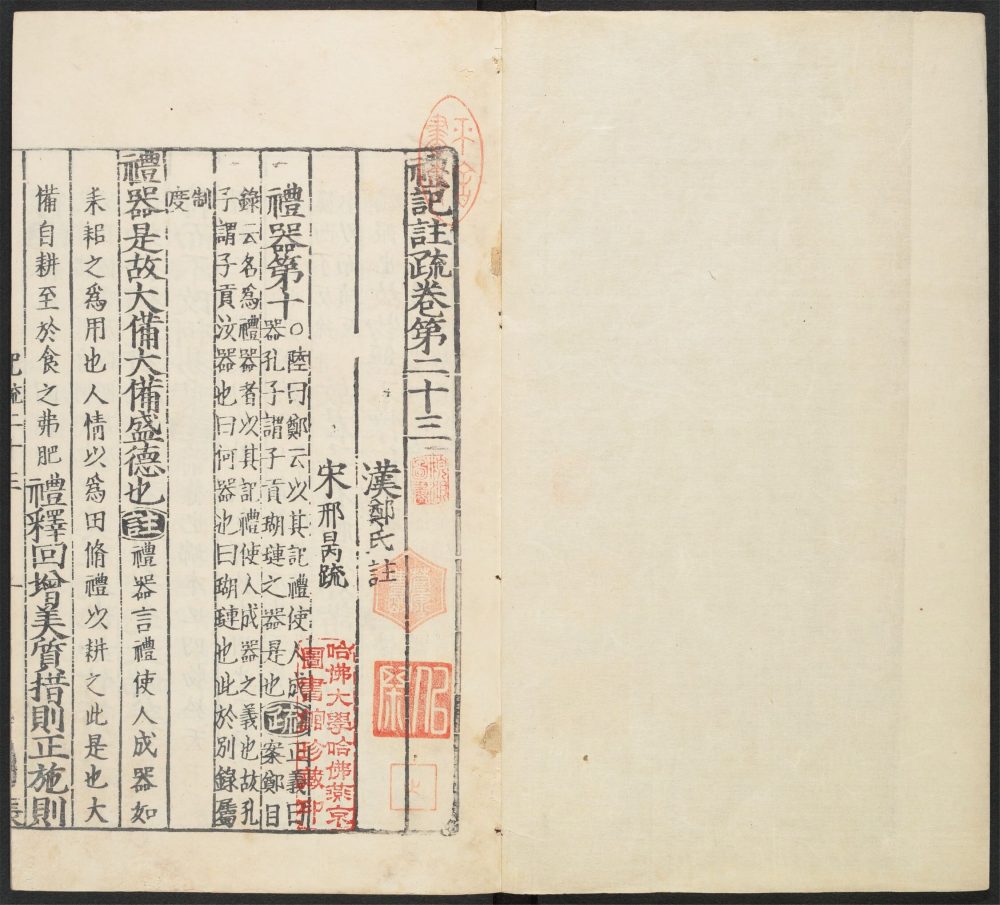 禮記註疏卷第二十三
漢鄭氏註
宋邢昺疏
禮器第十
○陸曰鄭云以其記禮使人成
器孔子謂子貢瑚璉之器是也
疏
正義曰
案鄭目
錄云名為禮器者以其記禮使人成器之義也故孔
子謂子貢汝器也曰何器也曰瑚璉也此於別錄屬
制
度
禮器是故大備大備盛德也
註
禮器言禮使人成器如
耒耜之爲用也人情以爲田脩禮以耕之此是也大
備自耕至於食之弗肥
禮釋回增美質措則正施則
記疏二十三
哈佛大學哈佛燕京
圖書館珍藏印